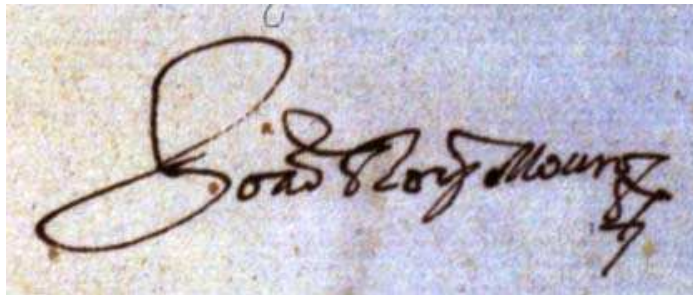 João Roiz Mour